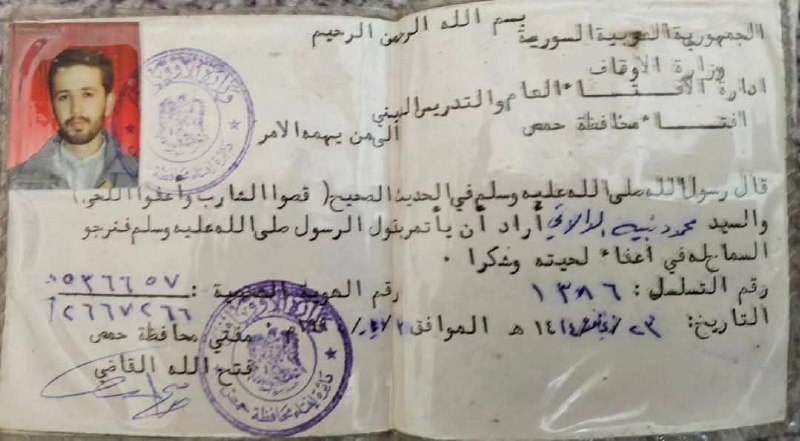 بسم الله الرحمن الرحيم
الجمهورية العربية السورية
وزارة الاوقاف
ادارة الافتاء العام والتدريس الديني
افتاء محافظة حمص
الى من يهمه الامر
قال رسول الله صلى الله عليه وسلم في الحديث الصحيح ( قصوا الشارب وأعفوا اللحى )
والسيد محمود نبيه الدالاتي أراد أن يأتمر بقول الرسول صلى الله عليه وسلم فنرجو
السماح له في اعفاء لحيته وشكرا .
رقم التسلسل : ١٣٨٦
رقم الهوية الشخصية : ٥٣٦٦٥٧
١٢٦٦٧٢٦٦
التاريخ: ٢٣ / / ١٤١٤ هـ الموافق
مفتي محافظة حمص
فتح الله القاضي
وزارة الأوقاف
دائرة إفتاء محافظة حمص